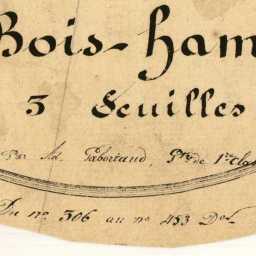 Bois-ham
3 Feuilles
Par Ad. Tabortaud, Gre de 1re Clas
Du no 306 au no 453 Der